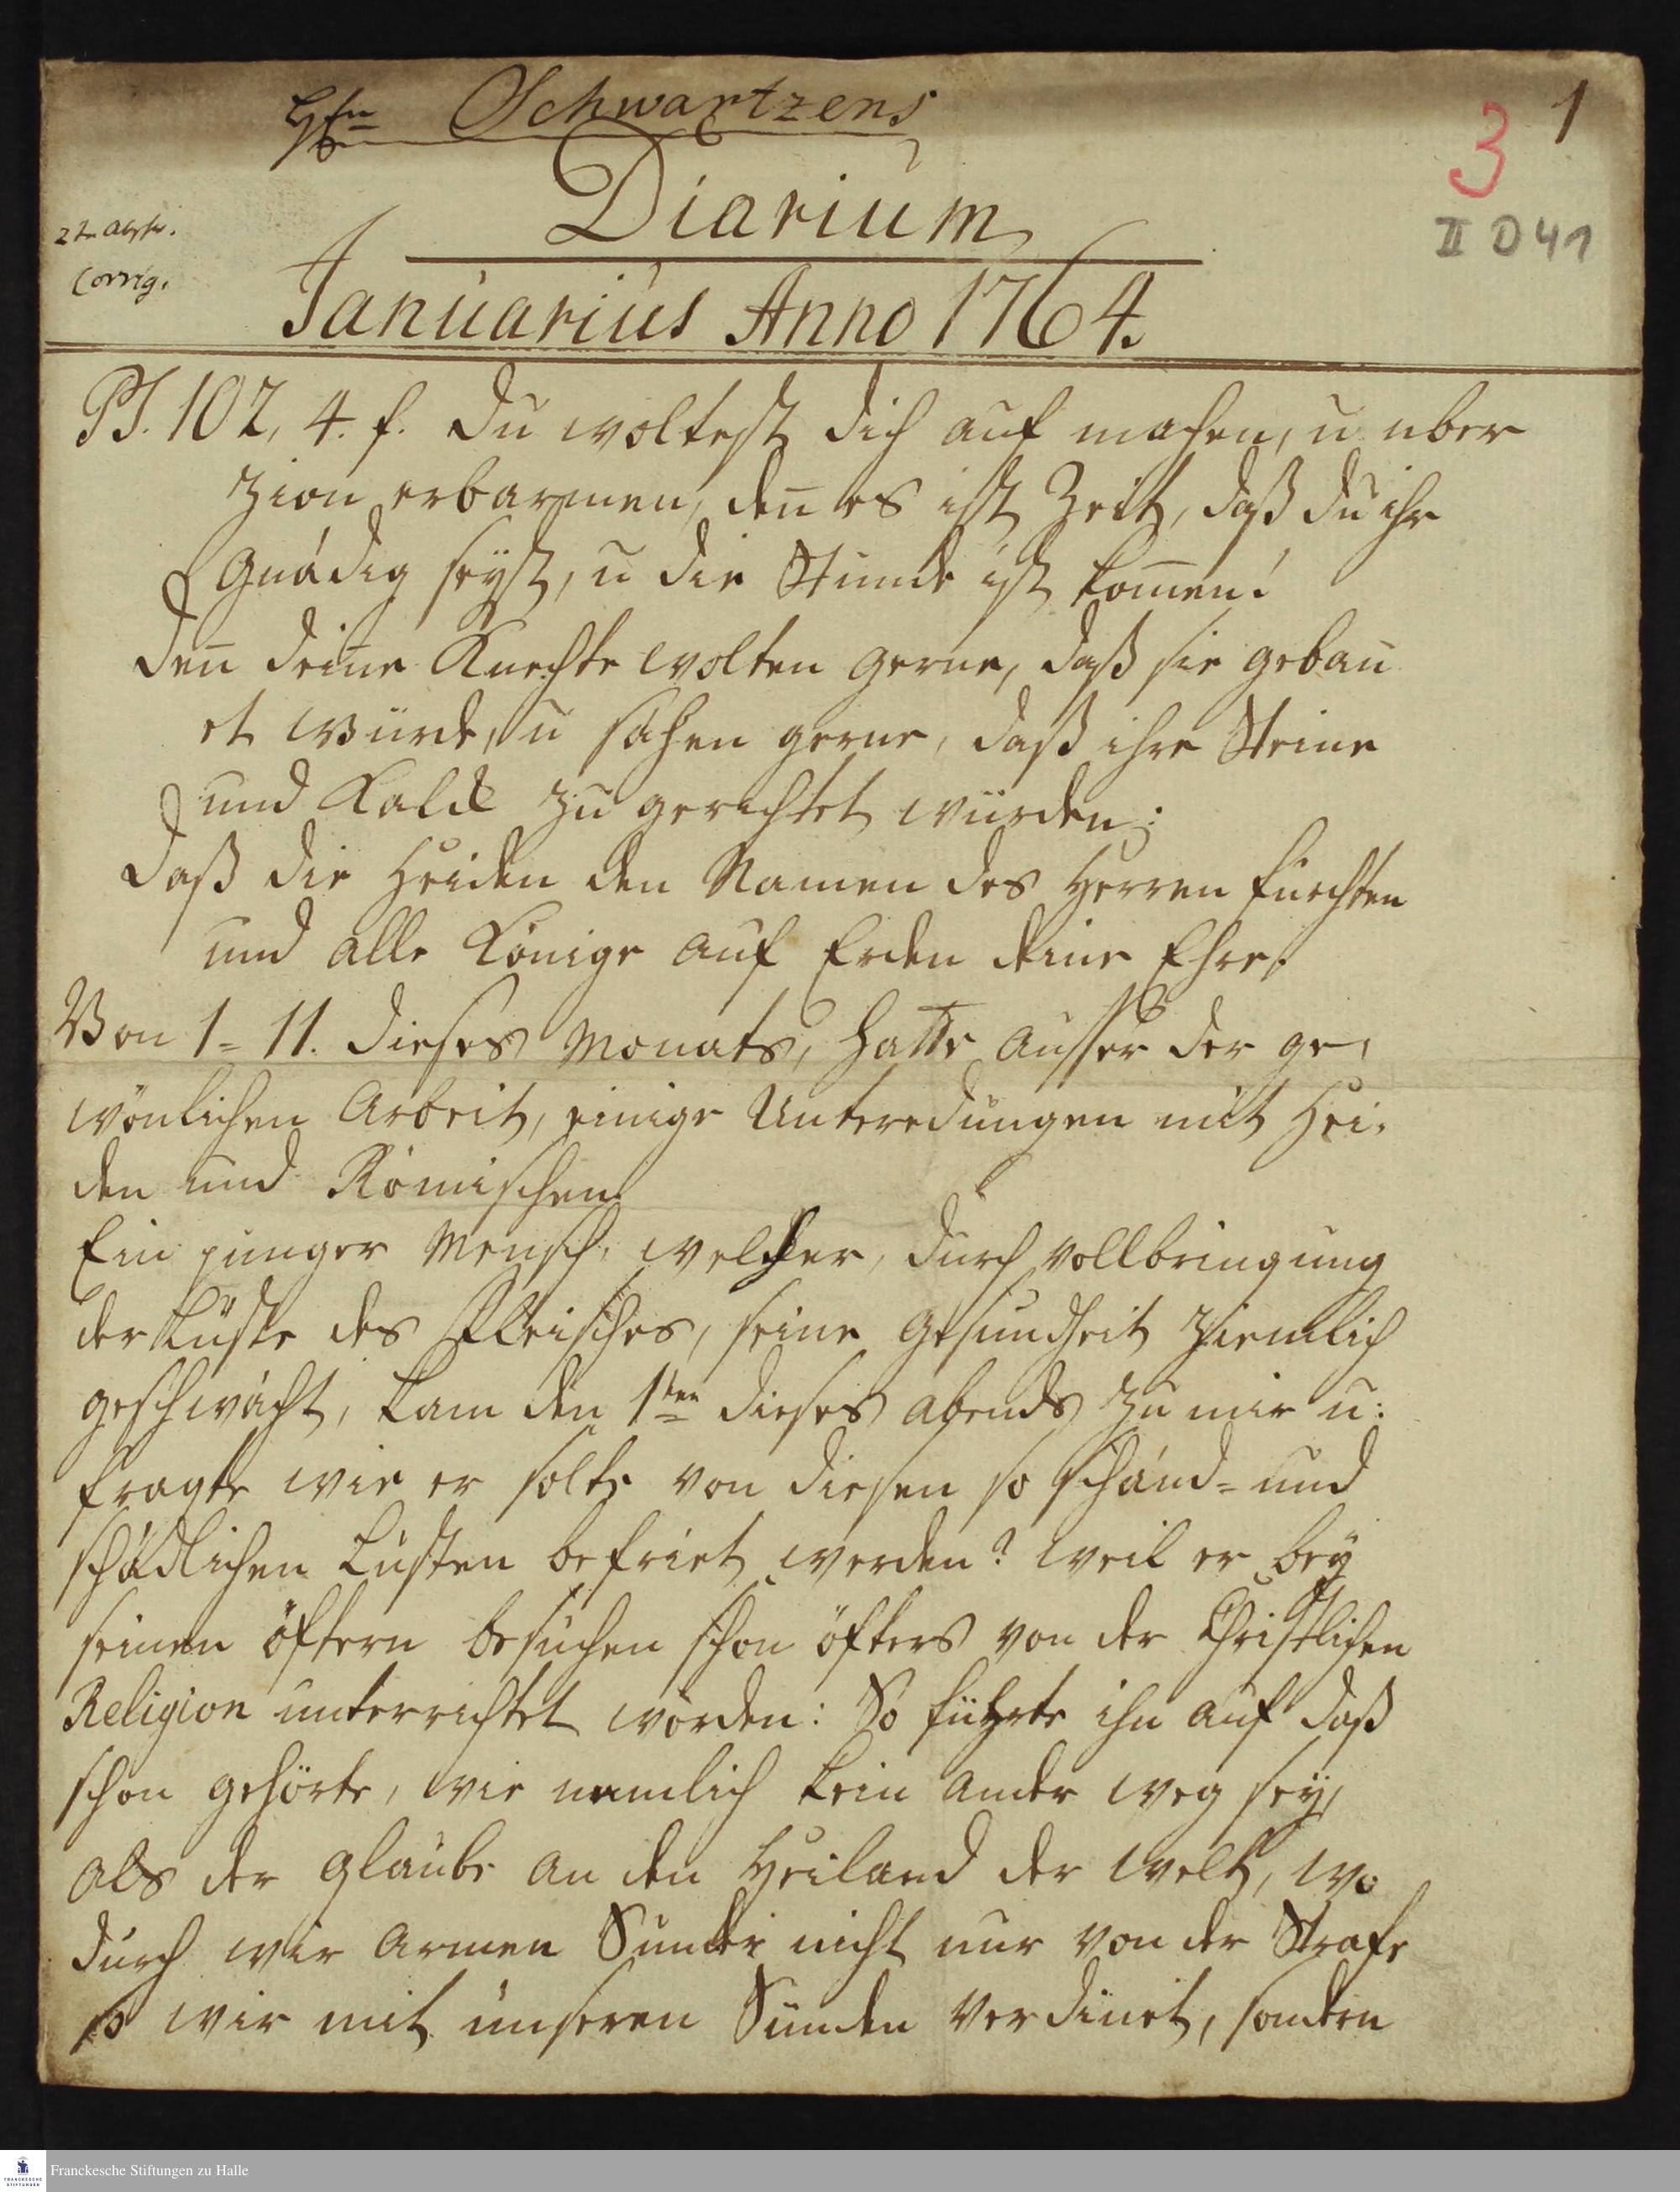 Hrn Schwartzens
1
3
Diarium
II D 41
2te Absch.
Corrig.
Januarius Anno 1764.
Ps. 102, 4. f. Du woltest dich auf machen, u uber
Zion erbarmen, den̄ es ist Zeit, daß du ihr
gnädig seyst, u die Stunde ist kom̄en!
den̄ deine Knechte wolten gerne, daß sie gebau
et würde, u sähen gerne, daß ihre Steine
und Kalck zu gerichtet würden;
daß die Heiden den Namen des Herren fürchten
und alle Könige auf Erden deine Ehre.
Von 1 = 11. dieses Monats, hatte ausser der ge,
wönlichen Arbeit, einige Unteredungen mit Hei,
den und Römischen.
Ein junger Mensch, welcher, durch vollbringung
der Lüste des Fleisches, seine Gesundheit ziemlich
geschwächt, kam den 1ten dieses abends zu mir u:
fragte wie er solte von diesen so schänd= und
schädlichen Lüsten befriet werden? weil er bey
seinen öftern besuchen schon öfters von der Christlichen
Religion unterrichtet worden: So führte ihn auf daß
schon gehörte, wie nemlich kein ander weg sey,
als der glaube an den Heiland der Welt, wo
durch wir armen Sunder nicht nur von der Strafe
so wir mit unseren Sünden verdinet, sondern
Franckesche Stiftungen zu Halle
FRANCKESCHE
STIFTUNGEN